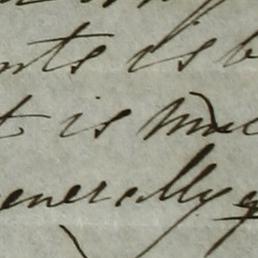 nts is b
t is mu
enerally